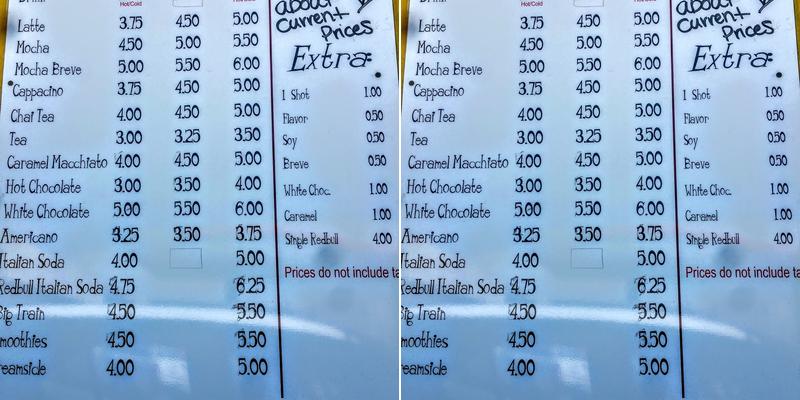 Hot/Cold
Latte 3.75 4.50 5.00
Mocha 4.50 5.00 5.50
Mocha Breve 5.00 5.50 6.00
Cappacino 3.75 4.50 5.00
Chai Tea 4.00 4.50 5.00
Tea 3.00 3.25 3.50
Caramel Macchiato 4.00 4.50 5.00
Hot Chocolate 3.00 3.50 4.00
White Chocolate 5.00 5.50 6.00
Americano 3.25 3.50 3.75
Italian Soda 4.00 5.00
Redbull Italian Soda 4.75 6.25
Big Train 4.50 5.50
moothies 4.50 5.50
reamside 4.00 5.00
about
Current
Prices
Extra:
1 Shot 1.00
Flavor 0.50
Soy 0.50
Breve 0.50
White Choc. 1.00
Caramel 1.00
Single Redbull 4.00
Prices do not include ta
Hot/Cold
Latte 3.75 4.50 5.00
Mocha 4.50 5.00 5.50
Mocha Breve 5.00 5.50 6.00
Cappacino 3.75 4.50 5.00
Chai Tea 4.00 4.50 5.00
Tea 3.00 3.25 3.50
Caramel Macchiato 4.00 4.50 5.00
Hot Chocolate 3.00 3.50 4.00
White Chocolate 5.00 5.50 6.00
Americano 3.25 3.50 3.75
Italian Soda 4.00 5.00
Redbull Italian Soda 4.75 6.25
Big Train 4.50 5.50
moothies 4.50 5.50
eamside 4.00 5.00
about
Current
Prices
Extra:
1 Shot 1.00
Flavor 0.50
Soy 0.50
Breve 0.50
White Choc. 1.00
Caramel 1.00
Single Redbull 4.00
Prices do not include ta